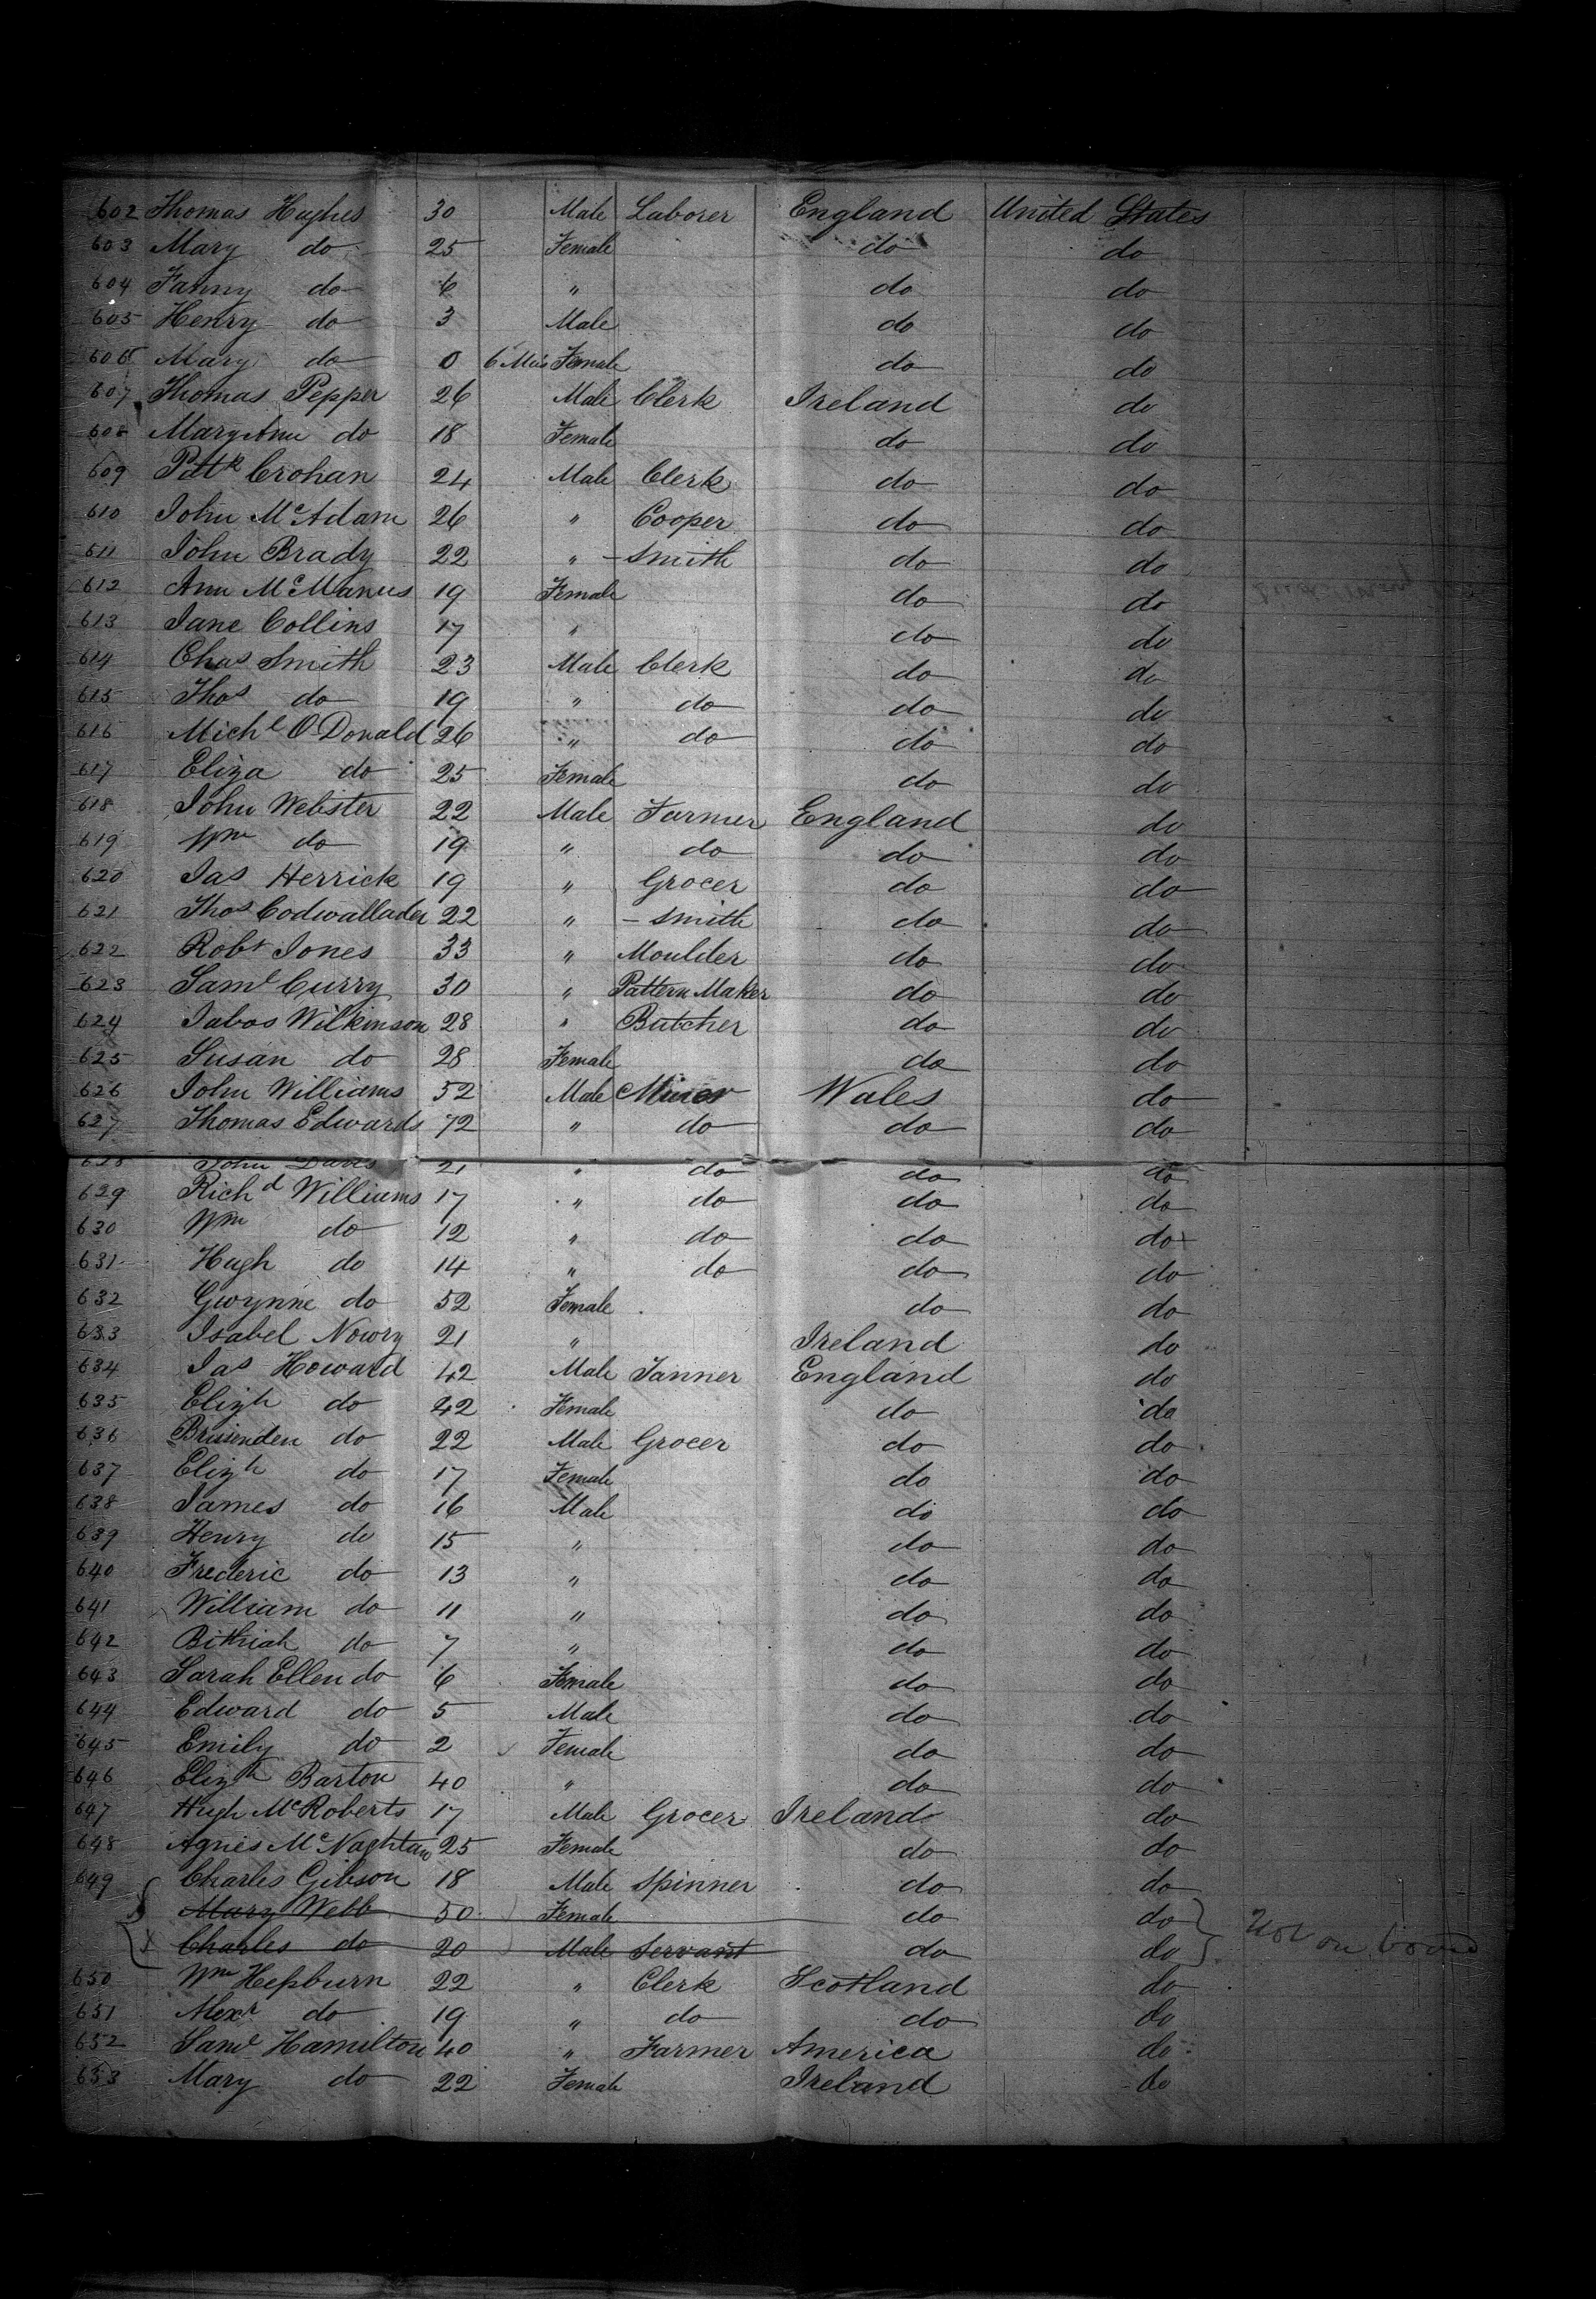 602 Thomas Hughes 30 Male Laborer England United States
603 Mary do 25 Female do do
604 Fanny do 6 " do do
605 Henry do 3 Male do do
606 Mary do 0 6 Mos Female do do
607 Thomas Pepper 26 Male Clerk Ireland do
608 Mary Ann do 18 Female do do
609 Patk Crohan 24 Male Clerk do do
610 John McAdam 26 " Cooper do do
611 John Brady 22 " - Smith do do
612 Ann McManus 19 Female do do
613 Jane Collins 17 " do do
614 Chas Smith 23 Male Clerk do do
615 Thos do 19 " do do do
616 Michl O'Donald 26 " do do do
617 Eliza do 25 Female do do
618 John Webster 22 Male Farmer England do
619 Wm do 19 " do do do
620 Jas Herrick 19 " Grocer do do
621 Thos Codwallader 22 " - Smith do do
622 Robt Jones 33 " Moulder do do
623 Saml Curry 30 " Pattern Maker do do
624 Jabos Wilkinson 28 " Butcher do do
625 Susan do 28 Female do do
626 John Williams 52 Male Miner Wales do
627 Thomas Edwards 72 " do do do
628 John Davis 21 " do do do
629 Richd Williams 17 " do do do
630 Wm do 12 " do do do
631 Hugh do 14 " do do do
632 Gwynne do 52 Female do do
633 Isabel Nowry 21 " Ireland do
634 Jas Howard 42 Male Tanner England do
635 Elizh do 42 Female do do
636 Brissenden do 22 Male Grocer do do
637 Elizh do 17 Female do do
638 James do 16 Male do do
639 Henry do 15 " do do
640 Frederic do 13 " do do
641 William do 11 " do do
642 Bithiah do 7 " do do
643 Sarah Ellen do 6 Female do do
644 Edward do 5 Male do do
645 Emily do 2 Female do do
646 Elizh Barton 40 " do do
647 Hugh McRoberts 17 Male Grocer Ireland do
648 Agnes McNaghtan 25 Female do do
649 Charles Gibson 18 Male Spinner do do
Mary Webb 50 Female do do
Charles do 20 Male Servant do do Not on board
650 Wm Hepburn 22 " Clerk Scotland do
651 Alexr do 19 " do do do
652 Saml Hamilton 40 " Farmer America do
653 Mary do 22 Female Ireland do